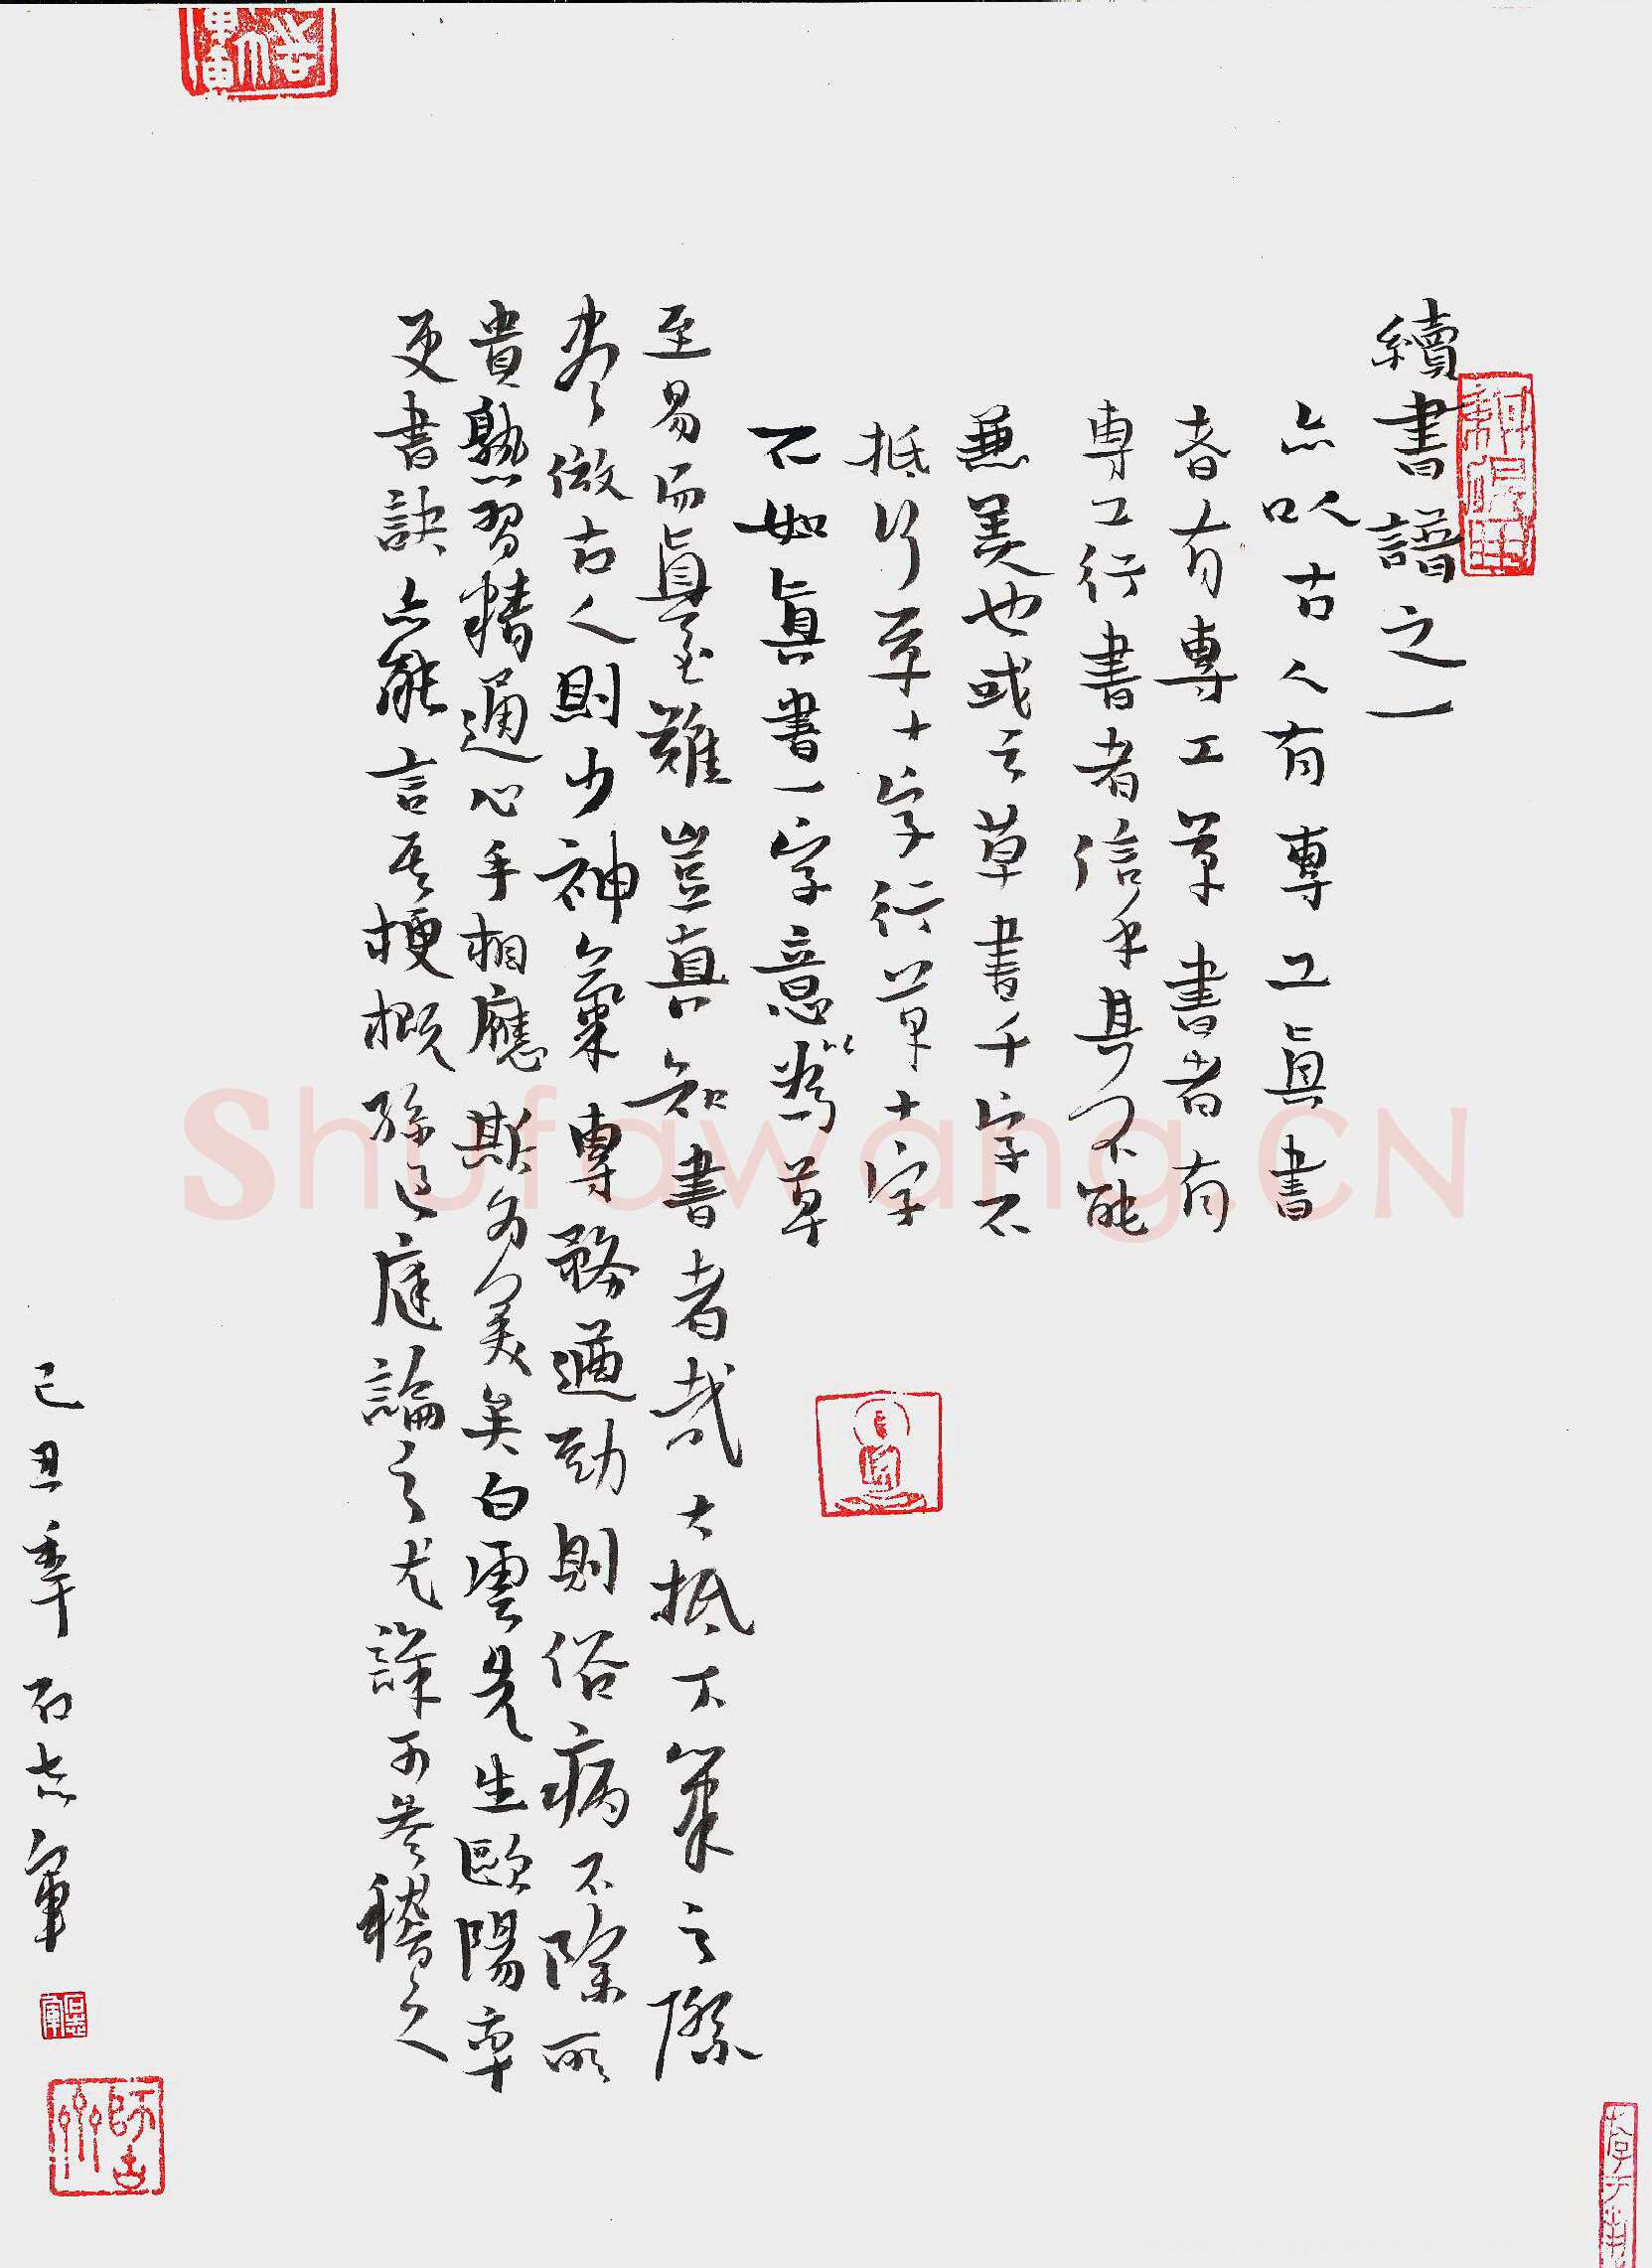 續書譜之一
亦以古人有專工真書
者有專工草書者有
專工行書者信乎其不能
兼美也或云草書千字不
抵行草十字行草十字
不如真書一字意以為草
至易而真至難豈真知書者哉大抵下筆之際
盡倣古人則少神氣專務遒勁則俗病不除所
貴熟習精通心手相應斯為美矣白雲先生歐陽率
更書訣亦能言其梗概孫過庭論之尤詳可參稽之
己丑年石志軍
師古
Shufawang.CN